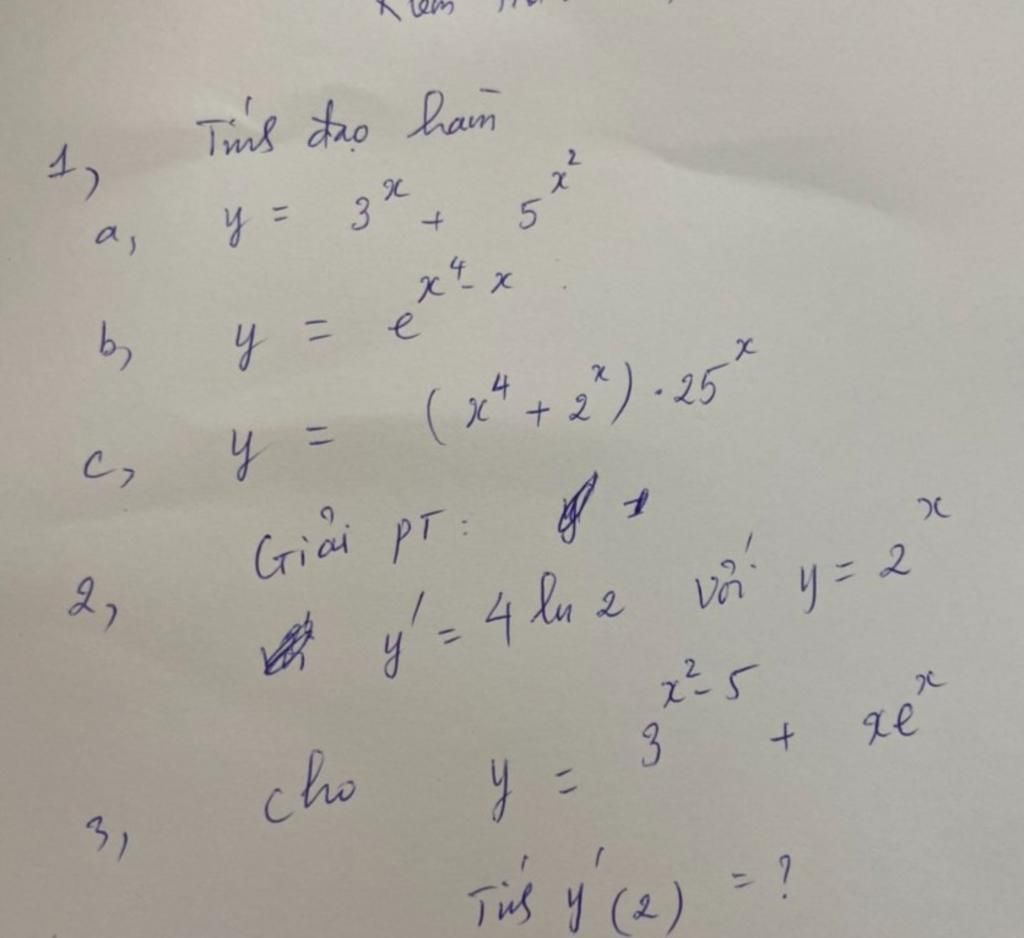 1, Tính đạo hàm
a, y = 3^x + 5^{x^2}
b, y = e^{x^4 - x}
c, y = (x^4 + 2^x) . 25^x
2, Giải PT:
y' = 4 ln 2 với y = 2^x
3, Cho y = 3^{x^2 - 5} + xe^x
Tính y'(2) = ?